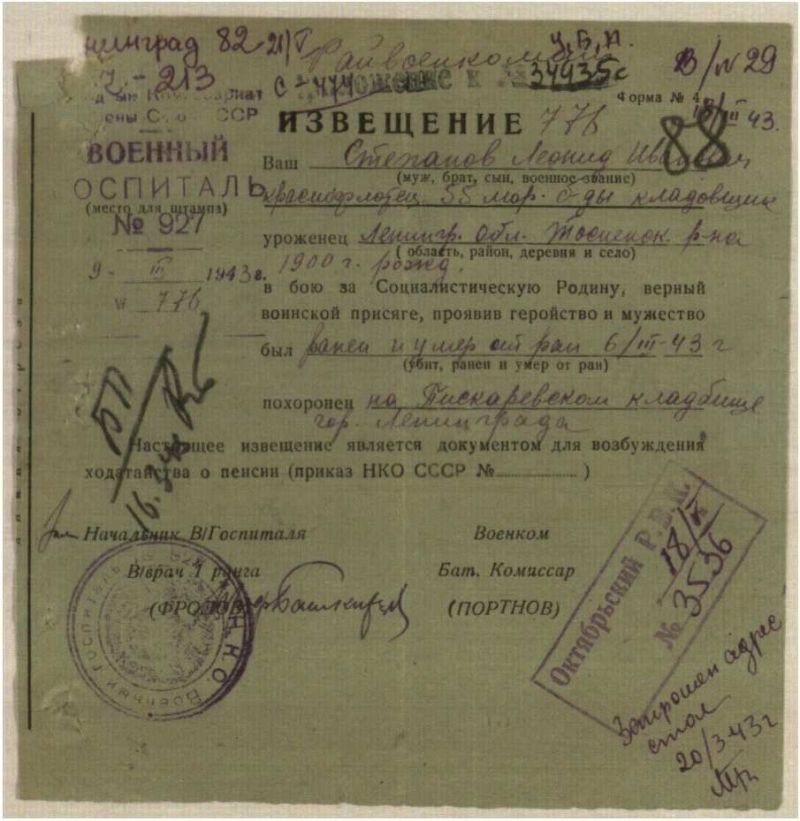 нинград 82-21/I
Райвоенкомат
У.Б.П.
-213
34935с
В/N 29
Форма № 4
/III 43.
ИЗВЕЩЕНИЕ 776
88
ВОЕННЫЙ
ОСПИТАЛЬ
(место для штампа)
№ 927
9- III 1943г.
N 776
Ваш Степанов Леонид Иванович
(муж, брат, сын, военное звание)
краснофлотец 55 мор. б-ды кладовщик
уроженец Ленингр. Обл. Тосненск. р-на
(область, район, деревня и село)
1900 г. рожд.
в бою за Социалистическую Родину, верный
воинской присяге, проявив геройство и мужество
был ранен и умер от ран 6/III-43 г
(убит, ранен и умер от ран)
похоронен на Пискаревском кладбище
гор. Ленинграда
Настоящее извещение является документом для возбуждения
ходатайства о пенсии (приказ НКО СССР № )
БП
Начальник В/Госпиталя
В/врач 1 ранга
(ФРОЛОВ)
Военком
Бат. Комиссар
(ПОРТНОВ)
Октябрьский Р.В.К.
№ 3536
Запрошен адрес
стол
20/3 43г